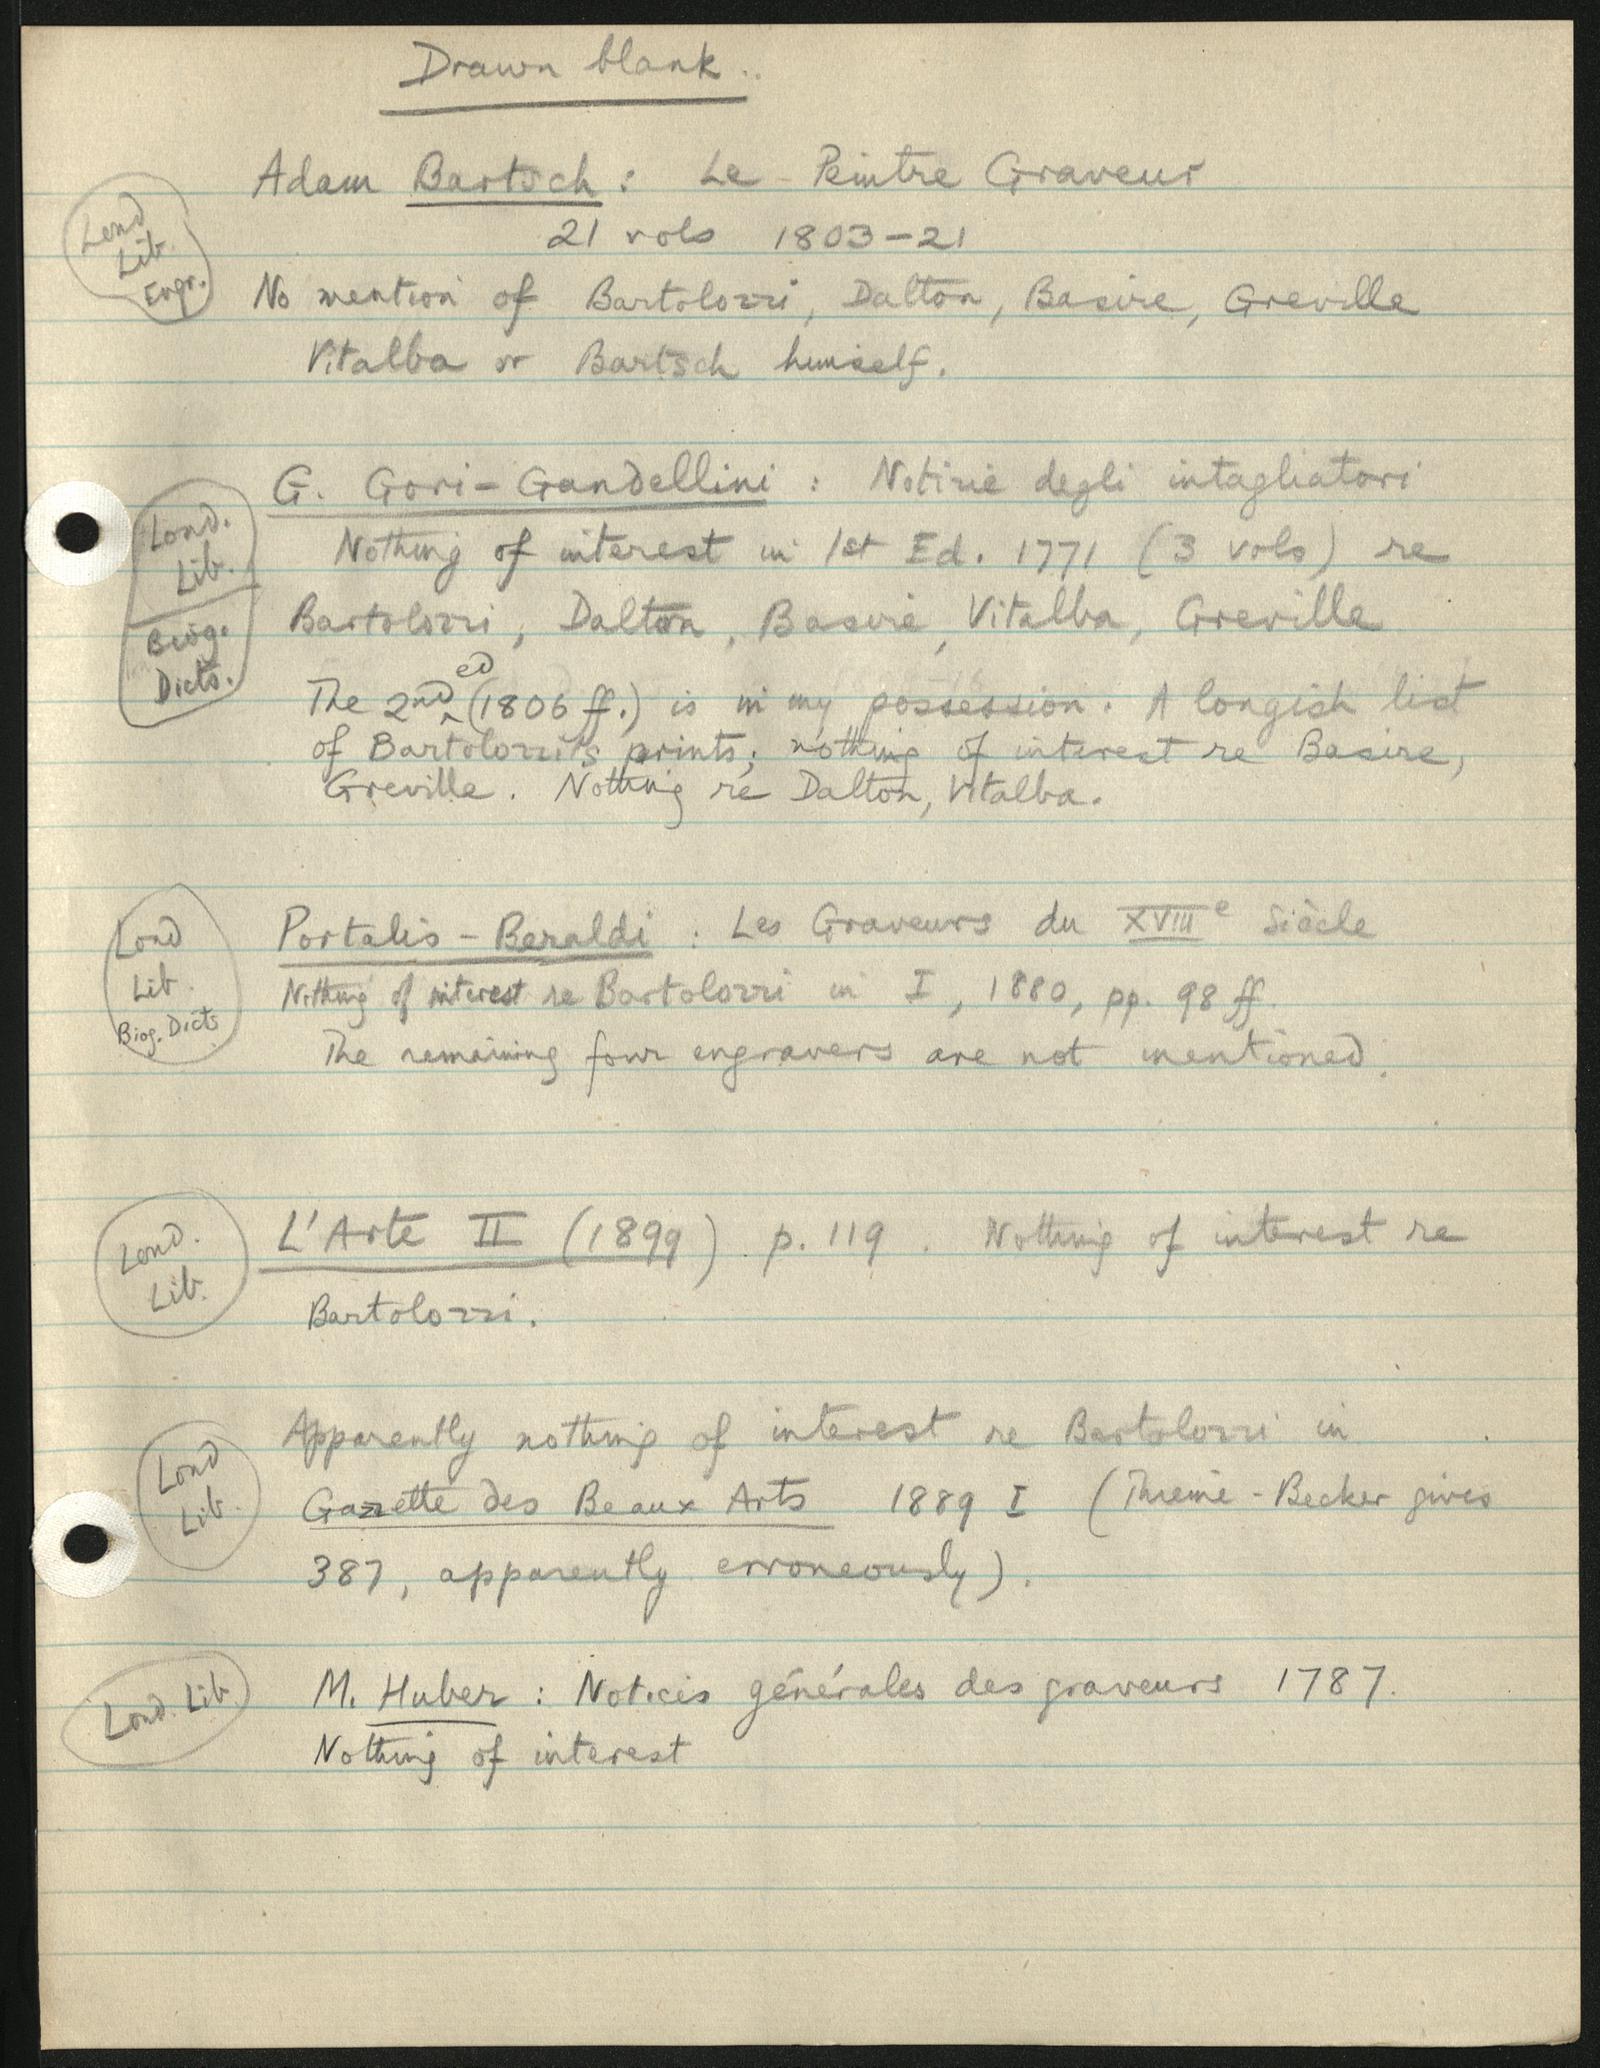 Drawn blank..
Adam Bartsch: Le Peintre Graveur
Lond
Lib.
Engr.
21 vols 1803-21
No mention of Bartolozzi, Dalton, Basire, Greville
Vitalba or Bartsch himself.
G. Gori-Gandellini : Notizie degli intagliatori
Lond.
Lib.
Biog.
Dicts.
Nothing of interest in 1st Ed. 1771 (3 vols) re
Bartolozzi, Dalton, Basire, Vitalba, Greville
The 2nd ed (1806 ff.) is in my possession. A longish list
of Bartolozzi's prints; nothing of interest re Basire,
Greville. Nothing re Dalton, Vitalba.
Lond
Lib.
Biog. Dicts
Portalis-Beraldi : Les Graveurs du XVIIIe Siècle
Nothing of interest re Bartolozzi in I, 1880, pp. 98 ff.
The remaining four engravers are not mentioned.
Lond.
Lib.
L'Arte II (1899) p. 119. Nothing of interest re
Bartolozzi.
Lond
Lib.
Apparently nothing of interest re Bartolozzi in
Gazette des Beaux Arts 1889 I (Thieme-Becker gives
387, apparently erroneously).
Lond. Lib.
M. Huber : Notices générales des graveurs 1787.
Nothing of interest